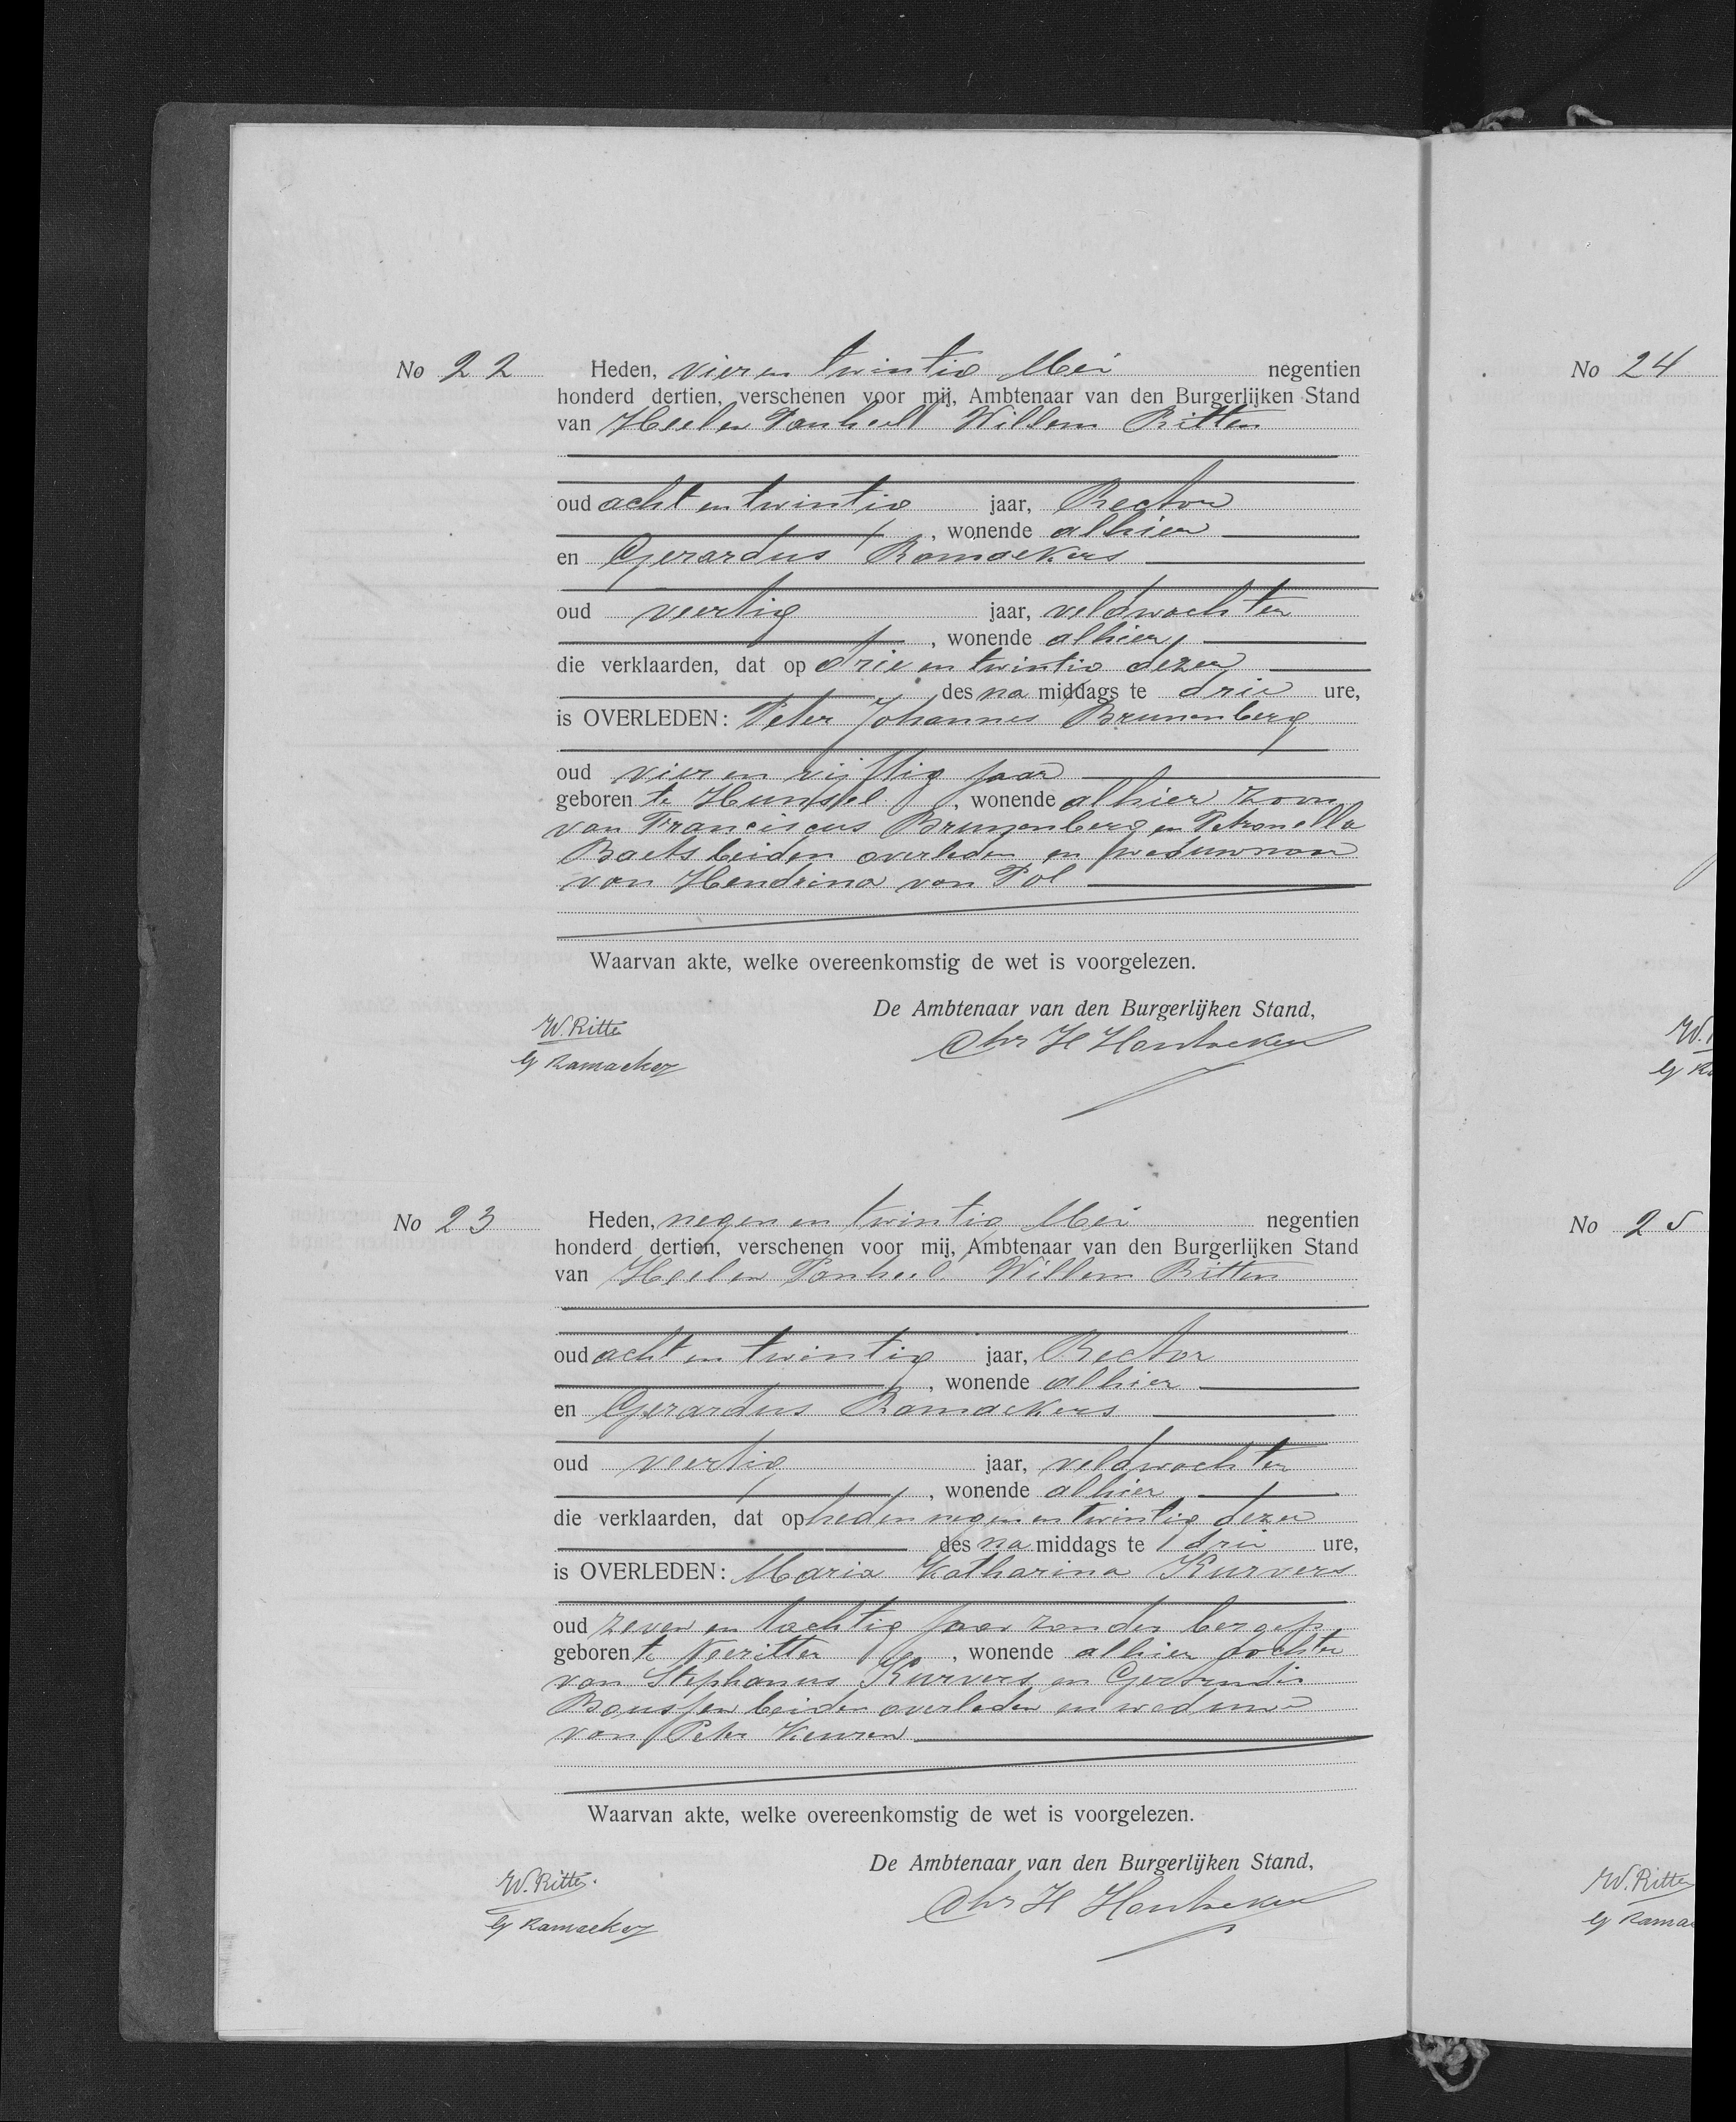 No 22 Heden, vier en twintig Mei negentien
honderd dertien, verschenen voor mij, Ambtenaar van den Burgerlijken Stand
van Heel en Panheel Willem Ritten
oud acht en twintig jaar, Rector
, wonende alhier
en Gerardus Ramaekers
oud veertig jaar, veldwachter
, wonende alhier,
die verklaarden, dat op drie en twintig dezer
des na middags te drie ure,
is OVERLEDEN: Peter Johannes Brunenberg
oud vier en vijftig jaar
geboren te Hunsel, wonende alhier zoon
van Franciscus Brunenberg en Petronella
Baets beiden overleden en weduwnaar
van Hendrina van Pol
Waarvan akte, welke overeenkomstig de wet is voorgelezen.
De Ambtenaar van den Burgerlijken Stand,
W. Ritte
Chr H
G Ramaekers
No 23 Heden, negen en twintig Mei negentien
honderd dertien, verschenen voor mij, Ambtenaar van den Burgerlijken Stand
van Heel en Panheel Willem Ritten
oud acht en twintig jaar, Rector
, wonende alhier
en Gerardus Ramaekers
oud veertig jaar, veldwachter
, wonende alhier,
die verklaarden, dat op heden negen en twintig dezer
des na middags te drie ure,
is OVERLEDEN: Maria Katharina Kurvers
oud zeven en tachtig jaar zonder beroep
geboren te Neeritter, wonende alhier dochter
van Stephanus Kurvers en Gertrudis
beiden overleden en weduwe
van Peter
Waarvan akte, welke overeenkomstig de wet is voorgelezen.
De Ambtenaar van den Burgerlijken Stand,
W. Ritte
Chr H
G Ramaekers
No 24
No 25
W. Ritte